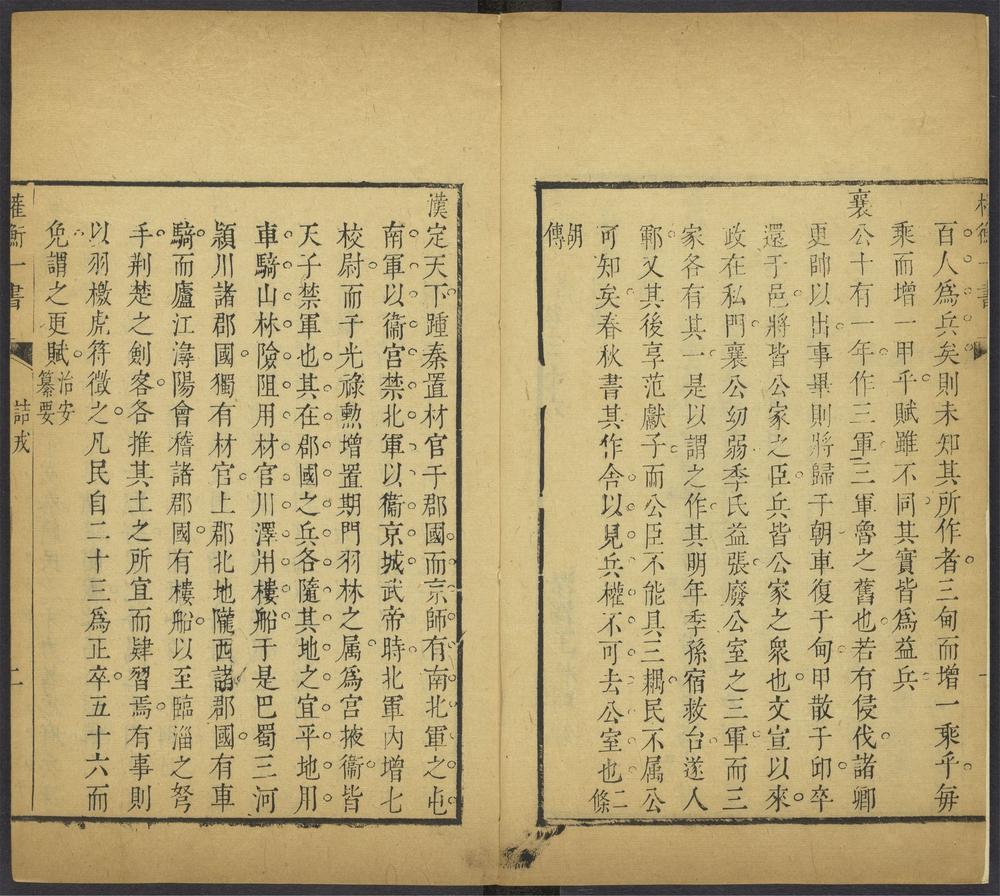 百人為兵矣則未知其所作者三甸而增一乘乎每
乘而增一甲乎賦雖不同其實皆為益兵
襄公十有一年作三軍三軍魯之舊也若有侵伐諸卿
更帥以出事畢則將歸于朝車復于甸甲散于邱卒
還于邑將皆公家之臣兵皆公家之衆也文宣以來
政在私門襄公幼弱季氏益張廢公室之三軍而三
家各有其一是以謂之作其明年季孫宿救台遂入
鄆又其後享范獻子而公臣不能具三耦民不属公
可知矣春秋書其作舍以見兵權不可去公室也二條
胡傳
漢定天下踵秦置材官于郡國而京師有南北軍之屯
南軍以衞宮禁北軍以衞京城武帝時北軍內增七
校尉而于光祿勲增置期門羽林之属為宮掖衞皆
天子禁軍也其在郡國之兵各隨其地之宜平地用
車騎山林險阻用材官川澤用樓船于是巴蜀三河
潁川諸郡國獨有材官上郡北地隴西諸郡國有車
騎而廬江潯陽會稽諸郡國有樓船以至臨淄之弩
手荆楚之劍客各推其土之所宜而肄習焉有事則
以羽檄虎符徵之凡民自二十三為正卒五十六而
免謂之更賦治安
纂要
權衡一書
詰戎
二